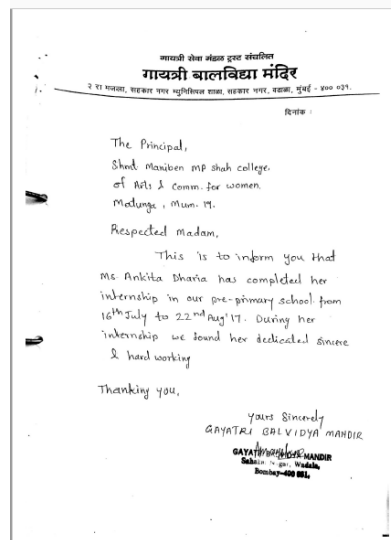 गायत्री सेवा मंडळ ट्रस्ट संचलित
गायत्री बालविद्या मंदिर
२ रा मजला, सहकार नगर म्युनिसिपल शाळा, सहकार नगर, वडाळा, मुंबई - ४०० ०३१.
दिनांक :
The Principal,
Shmt Maniben MP shah college.
of Arts & Comm. for women.
Matunga, Mum. 19.
Respected Madam,
This is to inform you that
Ms. Ankita Dharia has completed her
internship in our pre-primary school from
16th July to 22nd Aug'17. During her
internship we found her dedicated sincere
& hard working
Thanking you,
yours Sincerely
GAYATRI BALVIDYA MANDIR
GAYATRI MANDIR
Nagar, Wadala,
Bombay-400 031.